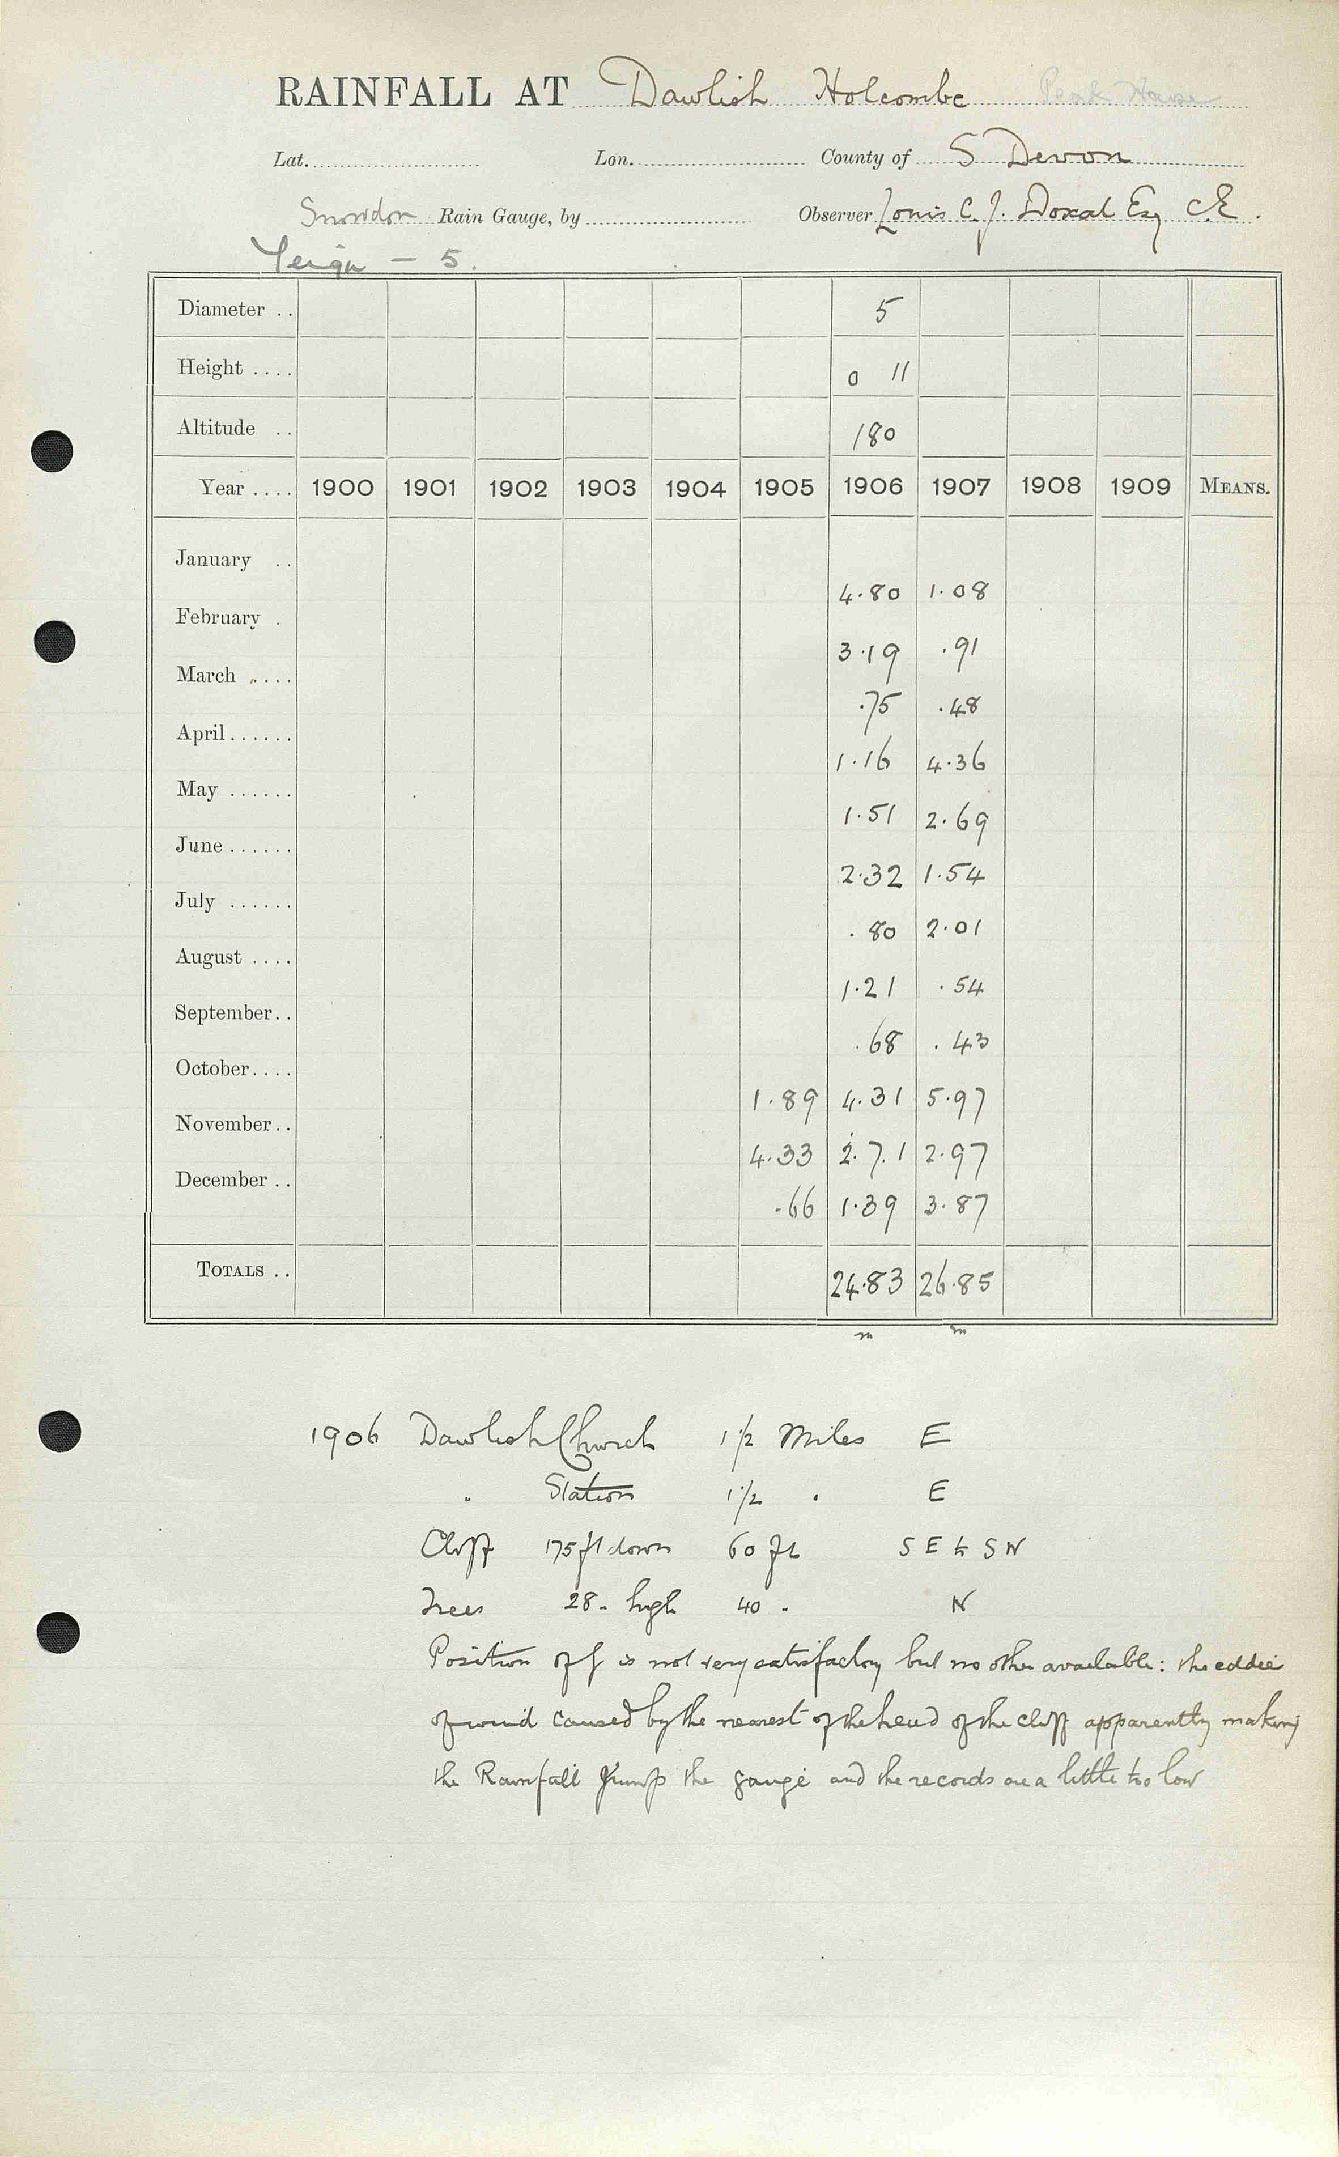 RAINFALL AT Dawlish Holcombe Peak House
Lat. Lon. County of S Devon
Snowdon Rain Gauge, by Observer Louis C. J. Doxat Esq C.E.
Teign - 5.
Diameter .. 5
Height .... 0 11
Altitude .. 180
Year .... 1900 1901 1902 1903 1904 1905 1906 1907 1908 1909 MEANS.
January .. 4.80 1.08
February . 3.19 .91
March .... .75 .48
April ...... 1.16 4.36
May ...... 1.51 2.69
June ...... 2.32 1.54
July ...... .80 2.01
August .... 1.21 .54
September .. .68 .43
October .... 1.89 4.31 5.97
November .. 4.33 2.71 2.97
December .. .66 1.39 3.87
TOTALS .. 24.83 26.85
m m
1906 Dawlish Church 1½ Miles E
" Station 1½ " E
Cliff 175 ft down 60 ft S E to S W
Trees 28 " high 40 " N
Position of G is not very satisfactory but no other available: the eddie
of wind caused by the nearest of the head of the cliff apparently making
the Rainfall jump the gauge and the records are a little too low